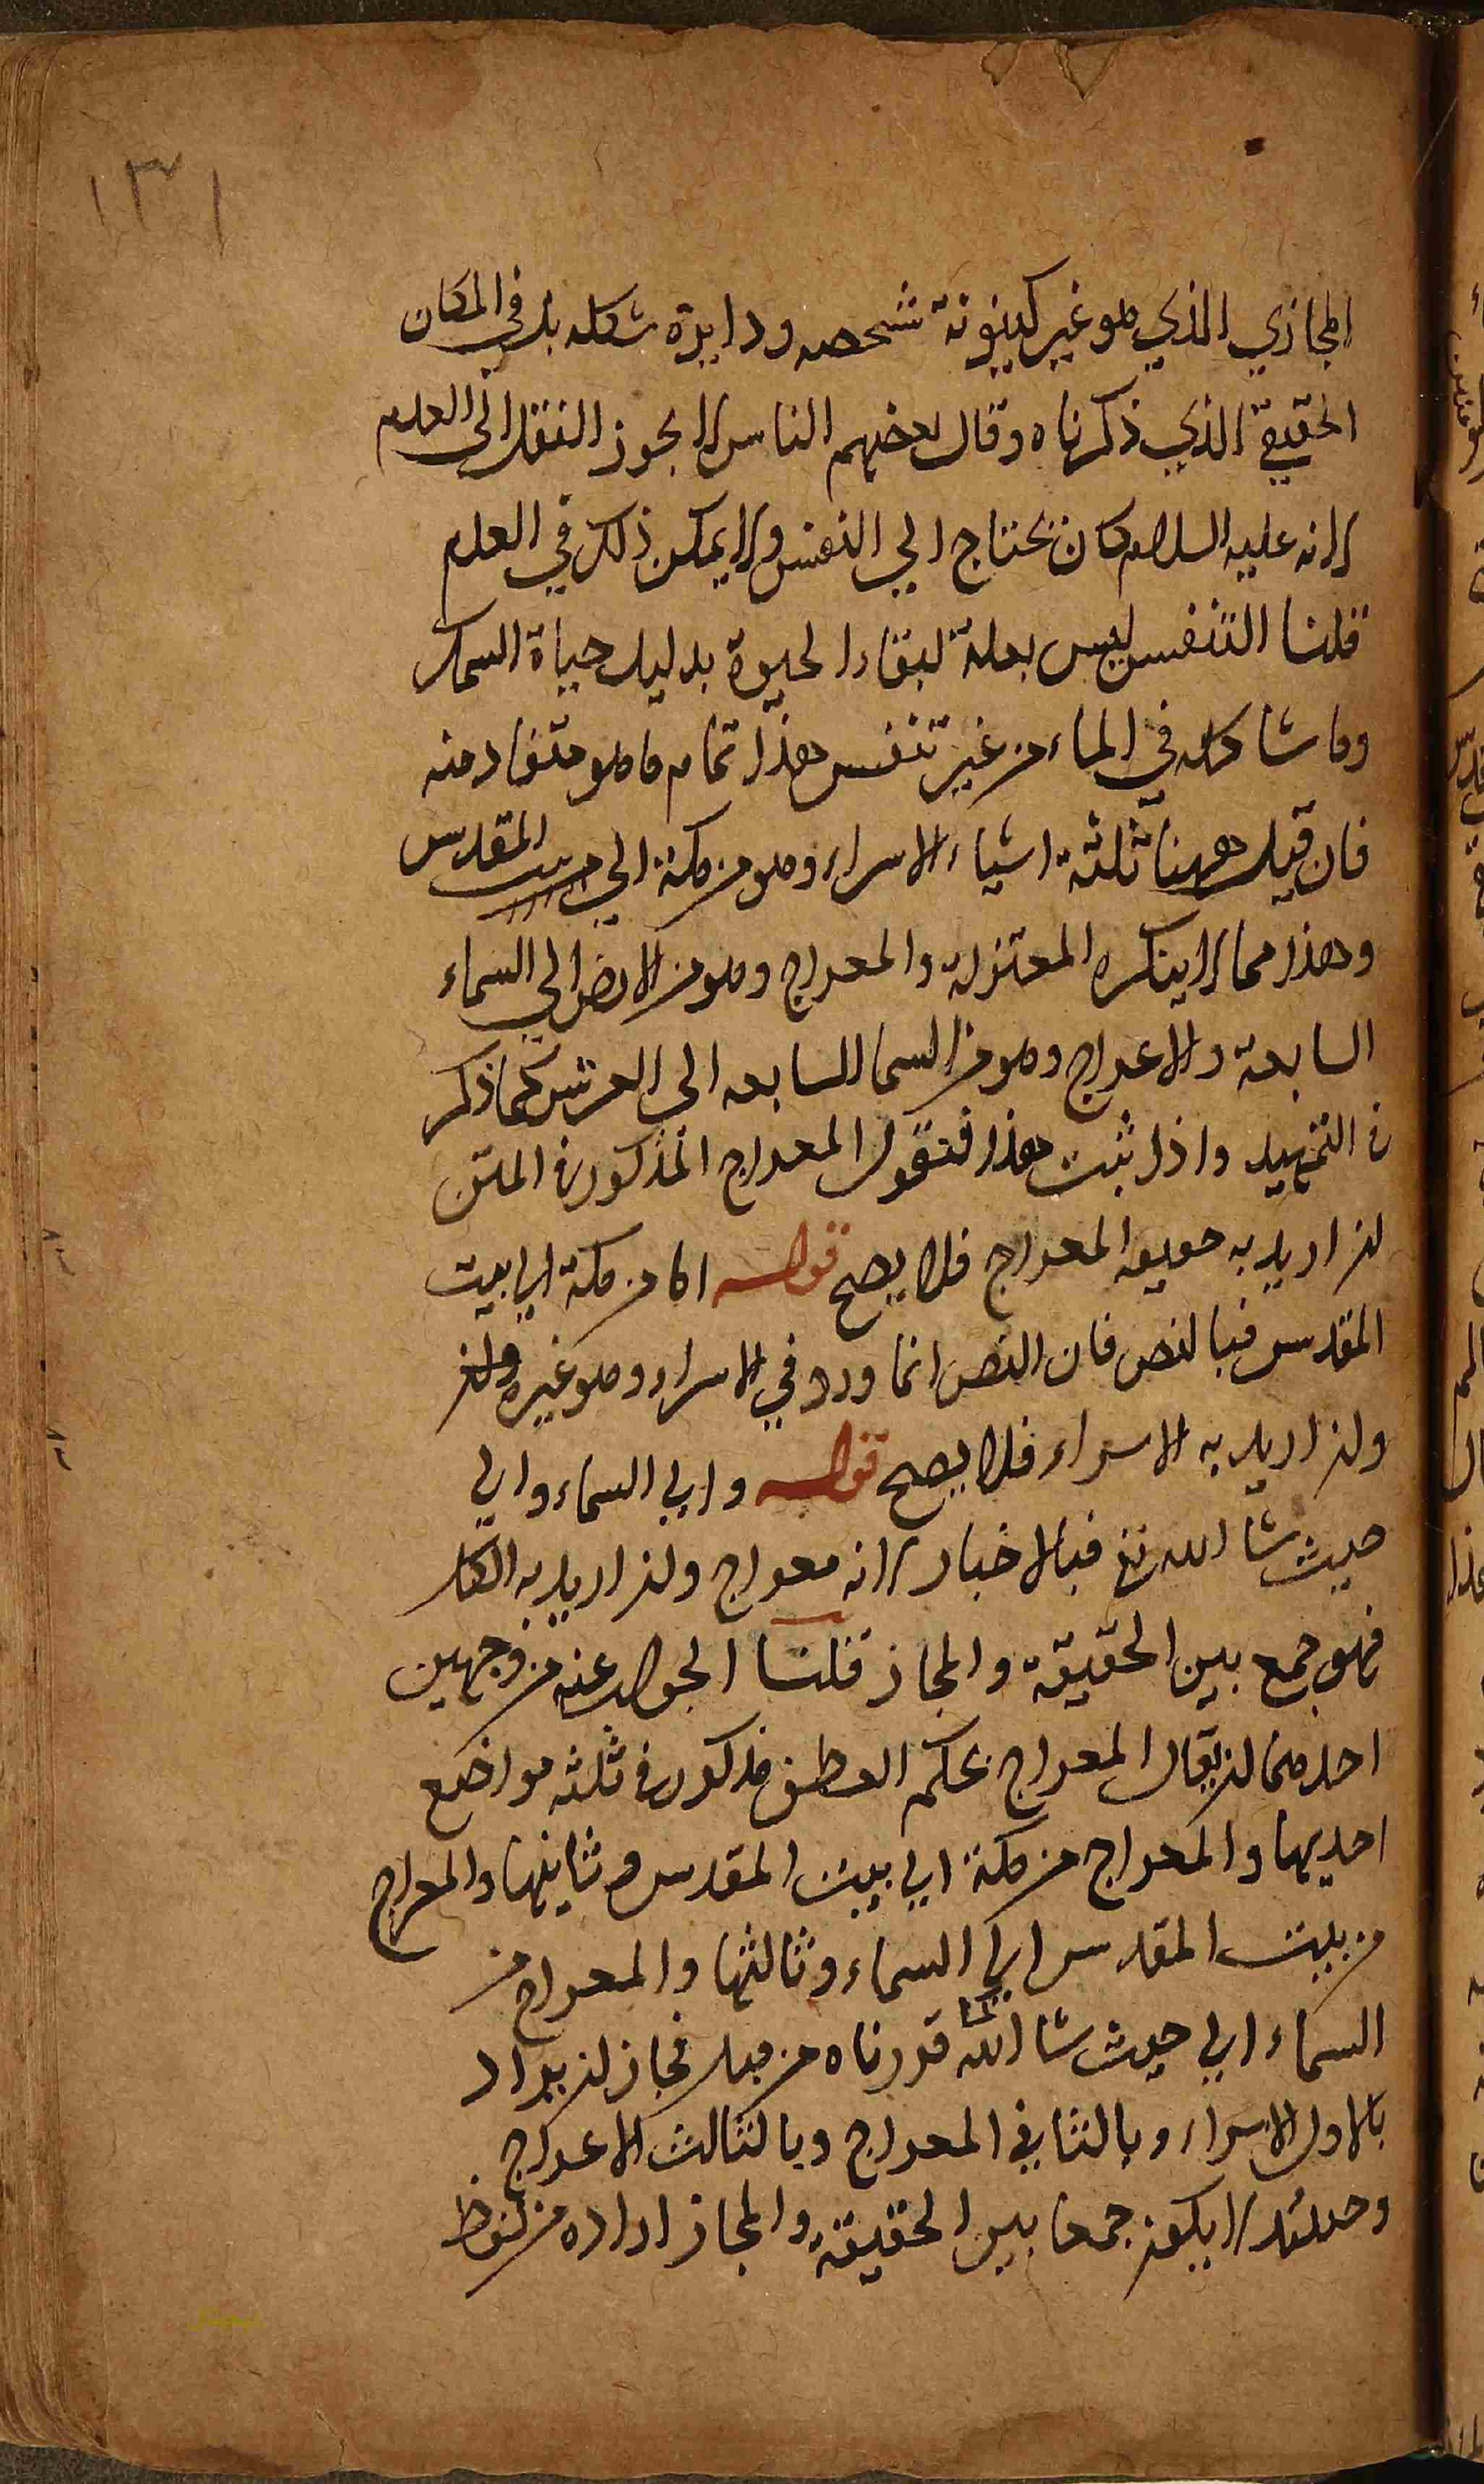 ١٣١
المجازي الذي هو غير كينونة شخصه ودايرة شكله بل في المكان
الحقيقي الذي ذكرناه وقال بعضهم الناس لا يجوز النقل الى العدم
لانه عليه السلام كان يحتاج الي النفس ولا يمكن ذلك في العدم
قلنا التنفس ليس بعلة لبقاء الحيوة بدليل حياة السمك
وما شاكله في الماء من غير تنفس هذا تمام ما هو مستفاد منه
فان قيل ههنا ثلثة اشياء الاسراء وهو من مكة الي بيت المقدس
وهذا مما لا ينكره المعتزلة والمعراج وهو من الارض الي السماء
السابعة والاعراج وهو من السما السابعه الي العرش كما ذكر
في التمهيد واذا ثبت هذا فنقول المعراج المذكور في المتن
ان اريد به حقيقه المعراج فلا يصح قوله اما من مكة الي بيت
المقدس فبالنص فان النص انما ورد في الاسراء وهو غيره وان
وان اريد به الاسراء فلا يصح قوله والي السماء والي
حيث شا الله تع فبالاخبار لانه معراج وان اريد به الكل
فهو جمع بين الحقيقة والمجاز قلنا الجواب عنه من وجهين
احدهما ان يقال المعراج بحكم العطف مذكور في ثلثه مواضع
احديها والمعراج من مكة الي بيت المقدس وثانيها والمعراج
من بيت المقدس الي السماء وثالثها والمعراج من
السماء الي حيث شا الله تعا قررناه من قبل فجاز ان يراد
بالاول الاسراء وبالثاني المعراج وبالثالث الاعراج
وحينئذ لا يكون جمعا بين الحقيقة والمجاز اراده من لفظ